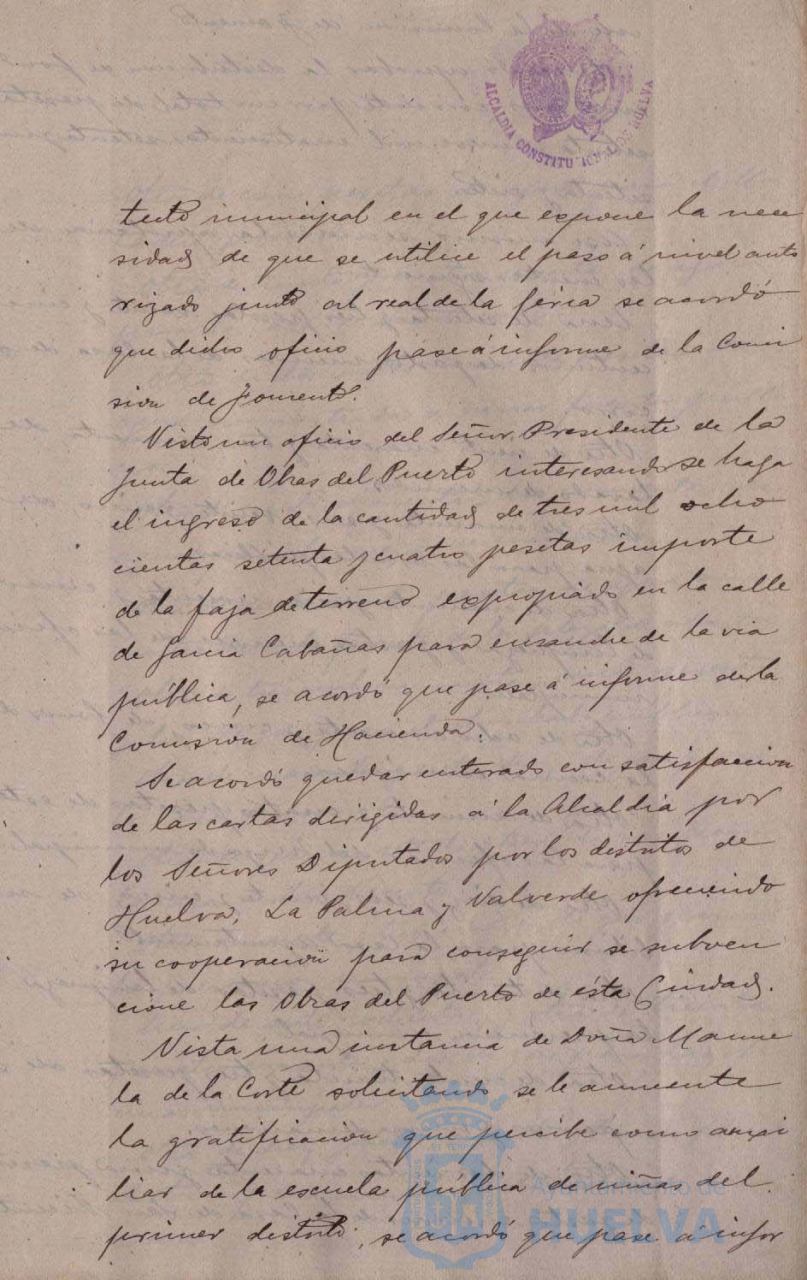 ALCALDIA CONSTITUCIONAL DE HUELVA
tecto municipal en el que expone la nece
sidad de que se utilice el paso á nivel auto
rizado junto al real de la feria se acordó
que dicho oficio pase á informe de la Comi
sion de Fomento.
Visto un oficio del Señor Presidente de la
Junta de Obras del Puerto interesando se haga
el ingreso de la cantidad de tres mil ocho
cientas setenta y cuatro pesetas importe
de la faja de terreno expropiado en la calle
de Garcia Cabañas para ensanche de la via
pública, se acordó que pase á informe de la
Comision de Hacienda.
Se acordó quedar enterado con satisfaccion
de las cartas dirigidas á la Alcaldia por
los Señores Diputados por los distritos de
Huelva, La Palma y Valverde ofreciendo
su cooperacion para conseguir se subven
cione las Obras del Puerto de ésta Ciudad.
Vista una instancia de Doña Manue
la de la Corte solicitando se le aumente
la gratificacion que percibe como auxi
liar de la escuela pública de niñas del
primer distrito, se acordó que pase á infor
Ayuntamiento de
HUELVA